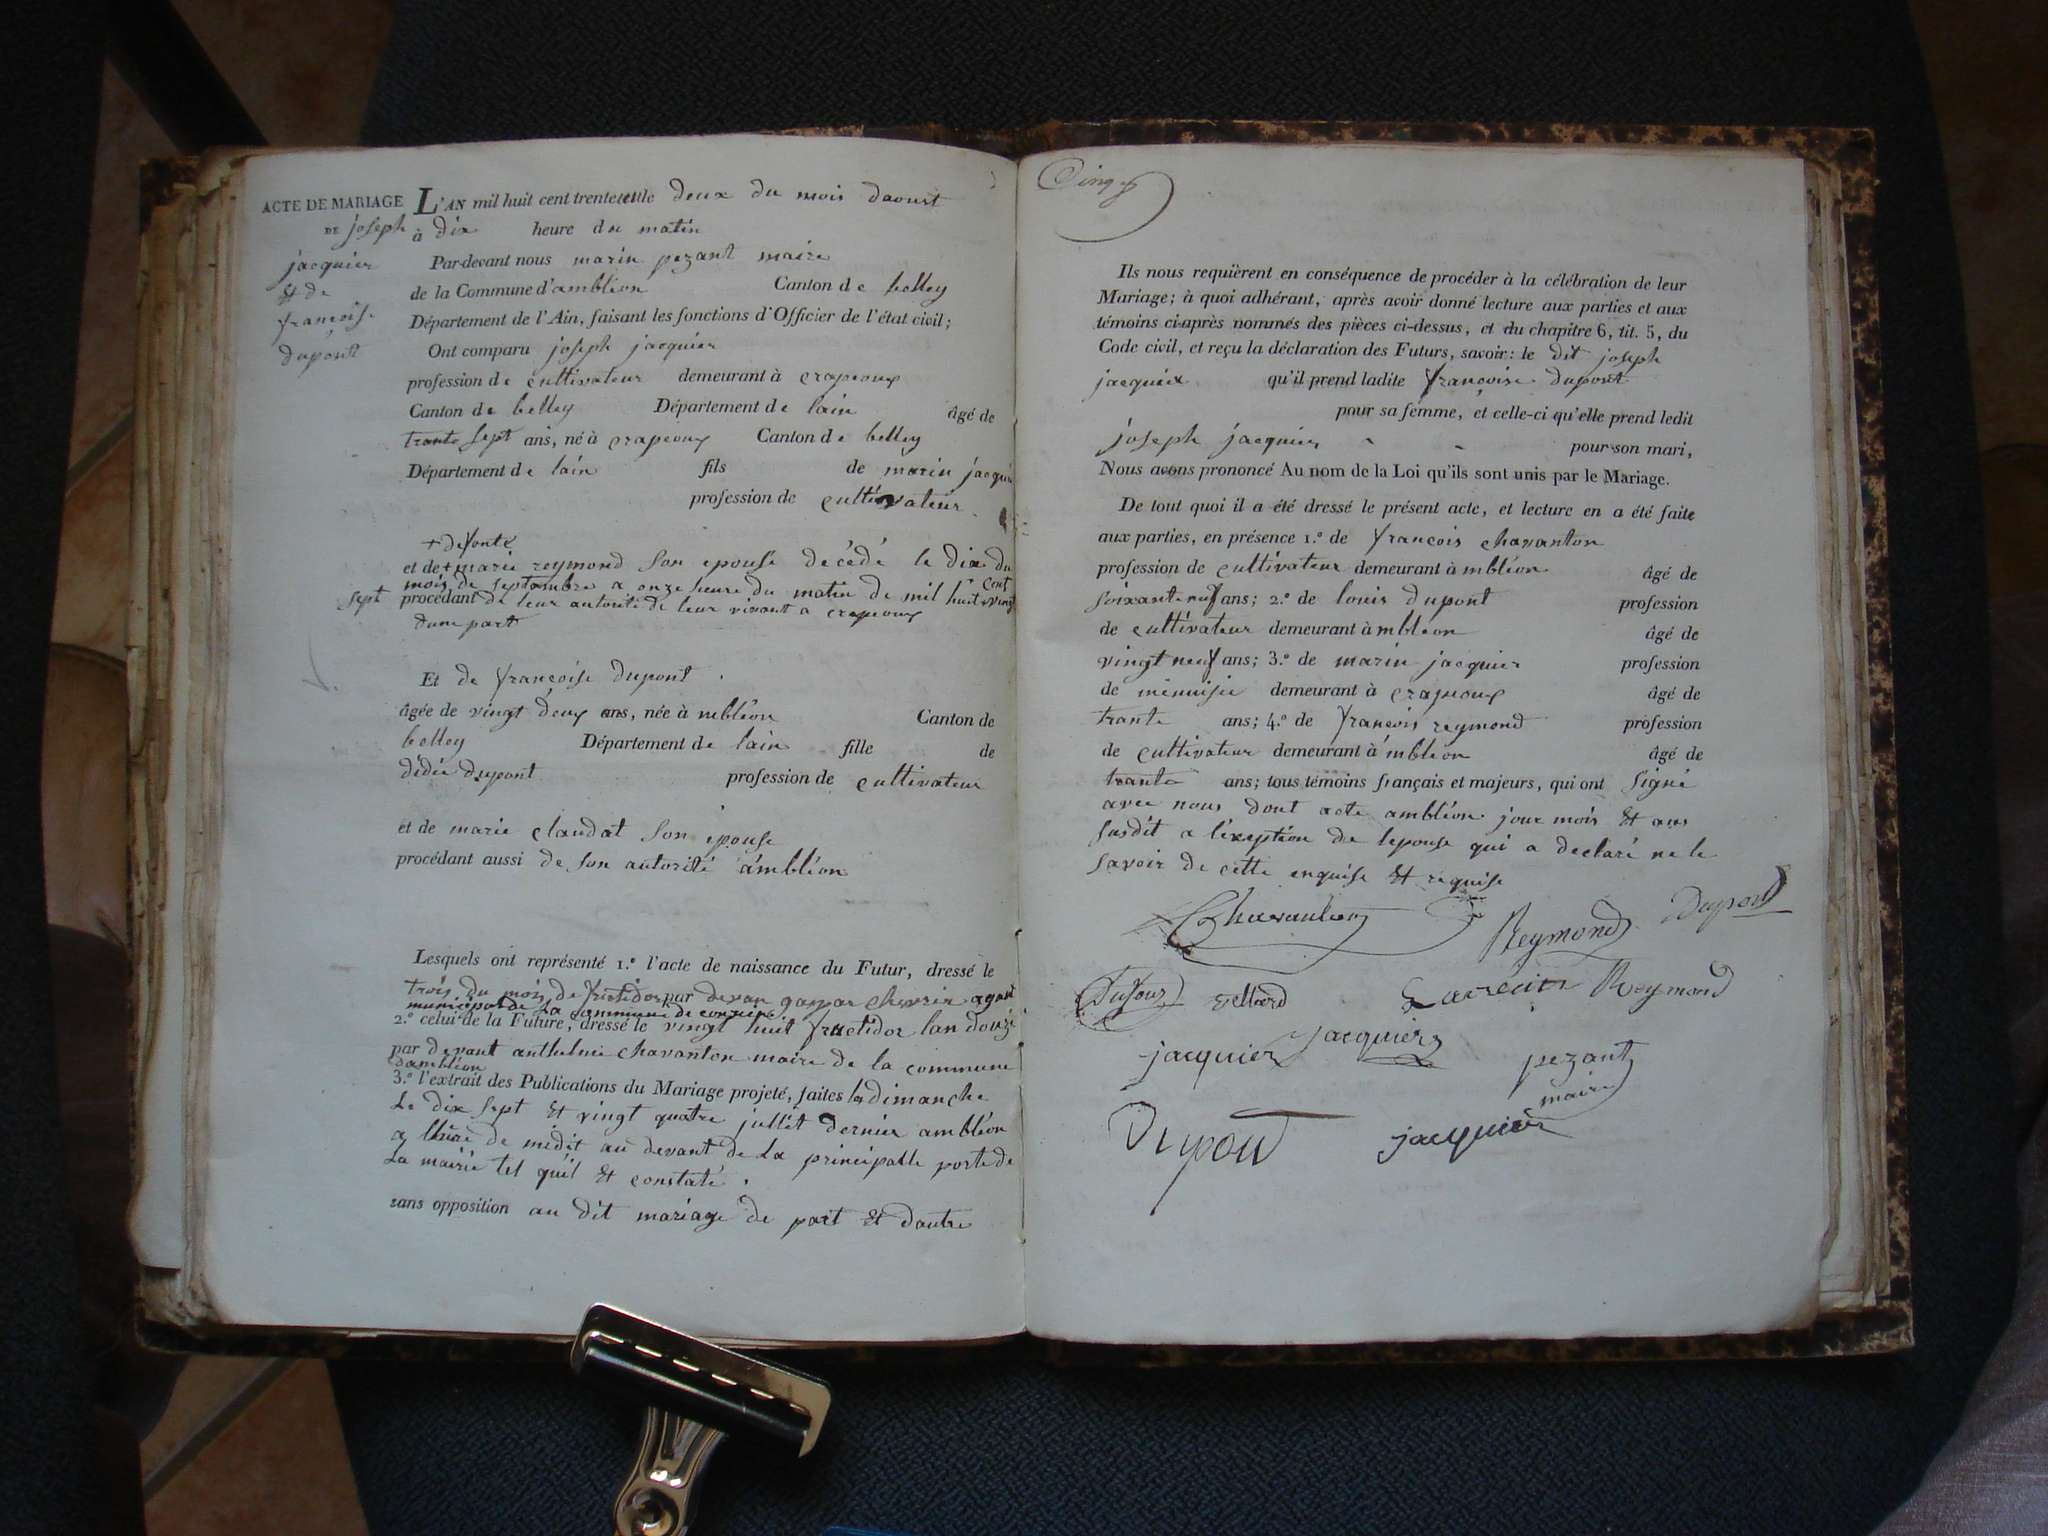 ACTE DE MARIAGE
DE joseph
jacquier
Et de
francoise
dupont
L'AN mil huit cent trente le deux du mois daoust
à dix heure du matin
Par-devant nous marin pezant maire
de la Commune d'ambléon Canton de belley
Département de l'Ain, faisant les fonctions d'Officier de l'état civil;
Ont comparu joseph jacquier
profession de cultivateur demeurant à crapeoux
Canton de belley Département de lain âgé de
trante sept ans, né à crapeoux Canton de belley
Département de lain fils de marin jacquie
profession de cultivateur
+ defonte
et de + marie reymond son epouse décédé le dix du
mois de septambre a onze heure du matin de mil huit cent vingt
sept procédant de leur autorité de leur vivant a crapeoux
dune part
Et de françoise dupont
âgée de vingt deux ans, née à mbléon Canton de
belley Département de lain fille de
didié dupont profession de cultivateur
et de marie claudat son épouse
procédant aussi de son autorité ámbléon
Lesquels ont représenté 1.º l'acte de naissance du Futur, dressé le
trois du mois de par devan gaspar agant
municipal de La Commune de
2.º celui de la Future, dressé le vingt huit fructidor lan douze
par devant anthelme chavanton maire de la commune
dambléon
3.º l'extrait des Publications du Mariage projeté, faites les dimanche
Le dix sept et vingt quatre juillet dernier ambléon
a lheure de midit au devant de La principalle porte de
La mairie tel quil Et constaté.
sans opposition au dit mariage de part Et dautre
Cinq
Ils nous requièrent en conséquence de procéder à la célébration de leur
Mariage; à quoi adhérant, après avoir donné lecture aux parties et aux
témoins ci-après nommés des pièces ci-dessus, et du chapitre 6, tit. 5, du
Code civil, et reçu la déclaration des Futurs, savoir: le dit joseph
jacquier qu'il prend ladite françoise dupont
pour sa femme, et celle-ci qu'elle prend ledit
joseph jacquier pour son mari,
Nous avons prononcé Au nom de la Loi qu'ils sont unis par le Mariage.
De tout quoi il a été dressé le présent acte, et lecture en a été faite
aux parties, en présence 1.º de françois chavanton
profession de cultivateur demeurant à mbléon âgé de
soixante neuf ans; 2.º de louis dupont profession
de cultivateur demeurant à mbléon âgé de
vingt neuf ans; 3.º de marin jacquier profession
de menuisie demeurant à crapeoux âgé de
trante ans; 4.º de françois reymond profession
de cultivateur demeurant à mbléon âgé de
trante ans; tous témoins français et majeurs, qui ont signé
avec nous dont acte ambléon jour mois Et ans
susdit a léxeption de lepouse qui a declaré ne le
savoir de cette enquise Et requise
Chavanton
Reymond
Dupont
Dufour
vellard
Reymond
jacquier
jacquier
pezant
maire
Dupont
jacquier